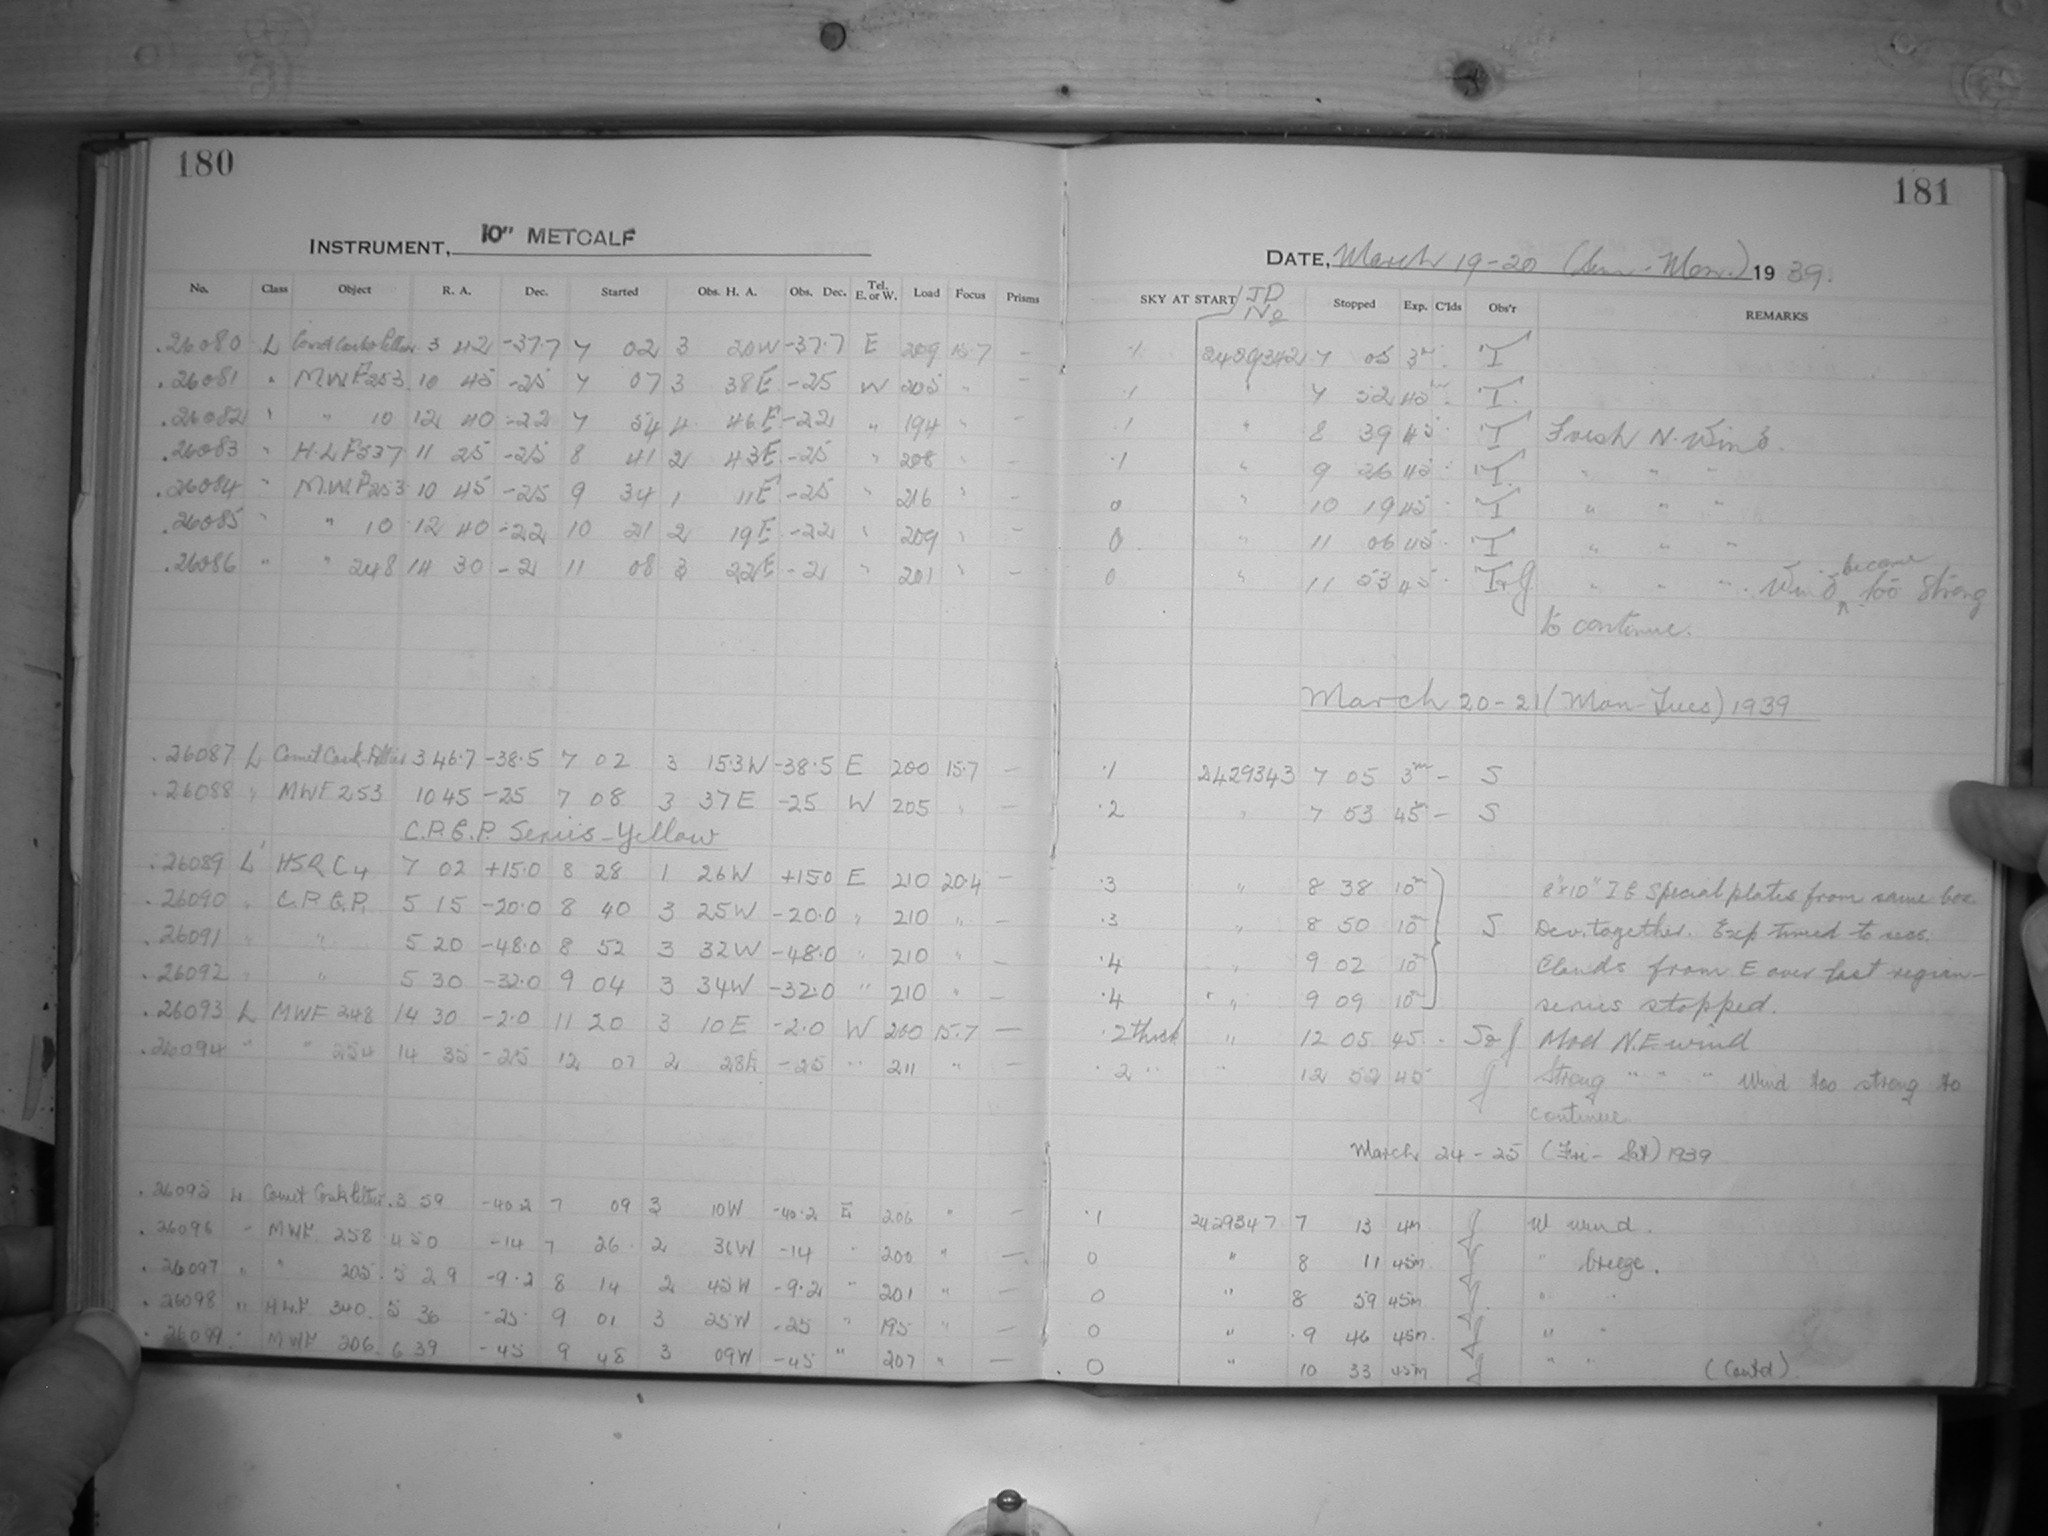 180
INSTRUMENT, 10" METCALF
No. Class Object R. A. Dec. Started Obs. H. A. Obs. Dec. Tel. E. or W. Load Focus Prisms
.26080 L 3 42 -37.7 7 02 3 20W -37.7 E 209 15.7 —
.26081 " M.W.F 253 10 45 -25 7 07 3 38E -25 W 205 " —
.26082 " " 10 12 40 -22 7 54 4 46E -22 " 194 " —
.26083 " H.L.F 537 11 25 -25 8 41 2 43E -25 " 208 " —
.26084 " M.W.F 253 10 45 -25 9 34 1 11E -25 " 216 " —
.26085 " " 10 12 40 -22 10 21 2 19E -22 " 209 " —
.26086 " " 248 14 30 -2 11 08 3 22E -2 " 201 " —
.26087 L Comet 3 46.7 -38.5 7 02 3 15.3W -38.5 E 200 15.7 —
.26088 " MWF 253 10 45 -25 7 08 3 37E -25 W 205 " —
C.P.G.P. Series - Yellow
.26089 L HSRC4 7 02 +15.0 8 28 1 26W +15.0 E 210 20.4 —
.26090 " C.P.G.P. 5 15 -20.0 8 40 3 25W -20.0 " 210 " —
.26091 " " 5 20 -48.0 8 52 3 32W -48.0 " 210 " —
.26092 " " 5 30 -32.0 9 04 3 34W -32.0 " 210 " —
.26093 L MWF 248 14 30 -2.0 11 20 3 10E -2.0 W 200 15.7 —
.26094 " " 254 14 35 -25 12 07 2 28E -25 " 211 " —
.26095 L Comet 3 59 -40.2 7 09 3 10W -40.2 E 206 " —
.26096 " MWF. 258 4 50 -14 7 26 2 36W -14 " 200 " —
.26097 " " 205. 5 29 -9.2 8 14 2 45W -9.2 " 201 " —
.26098 " H.L.F 340. 5 36 -25 9 01 3 25W -25 " 195 " —
.26099 " MWF 206. 6 39 -45 9 48 3 09W -45 " 207 " —
181
DATE, March 19-20 (Sun.-Mon.) 1939.
SKY AT START JD No Stopped Exp. C'lds Obs'r REMARKS
.1 2429342 7 05 3m T
.1 " 7 52 45m T.
.1 " 8 39 45 T Fresh N. Wind.
.1 " 9 26 45 T. " " "
0 " 10 19 45 T " " "
0 " 11 06 45 T " " "
0 " 11 53 45 T & J " " ". Wind became too strong
to continue.
March 20-21 (Mon-Tues) 1939
.1 2429343 7 05 3m — S
.2 " 7 53 45 — S
.3 " 8 38 10m 8"x10" I G Special plates from same box
.3 " 8 50 10m S Dev. together. Exp timed to secs.
.4 " 9 02 10m Clouds from E over last region—
.4 " 9 09 10m series stopped.
.2 thick " 12 05 45 S & J Mod N.E. wind
.2 " " 12 52 45 J Strong " " " Wind too strong to
continue.
March 24-25 (Fri-Sat) 1939
.1 2429347 7 13 4m J W wind.
0 " 8 11 45m J " breeze.
0 " 8 59 45m J " "
0 " 9 46 45m. J " "
0 " 10 33 45m J " " (Contd).